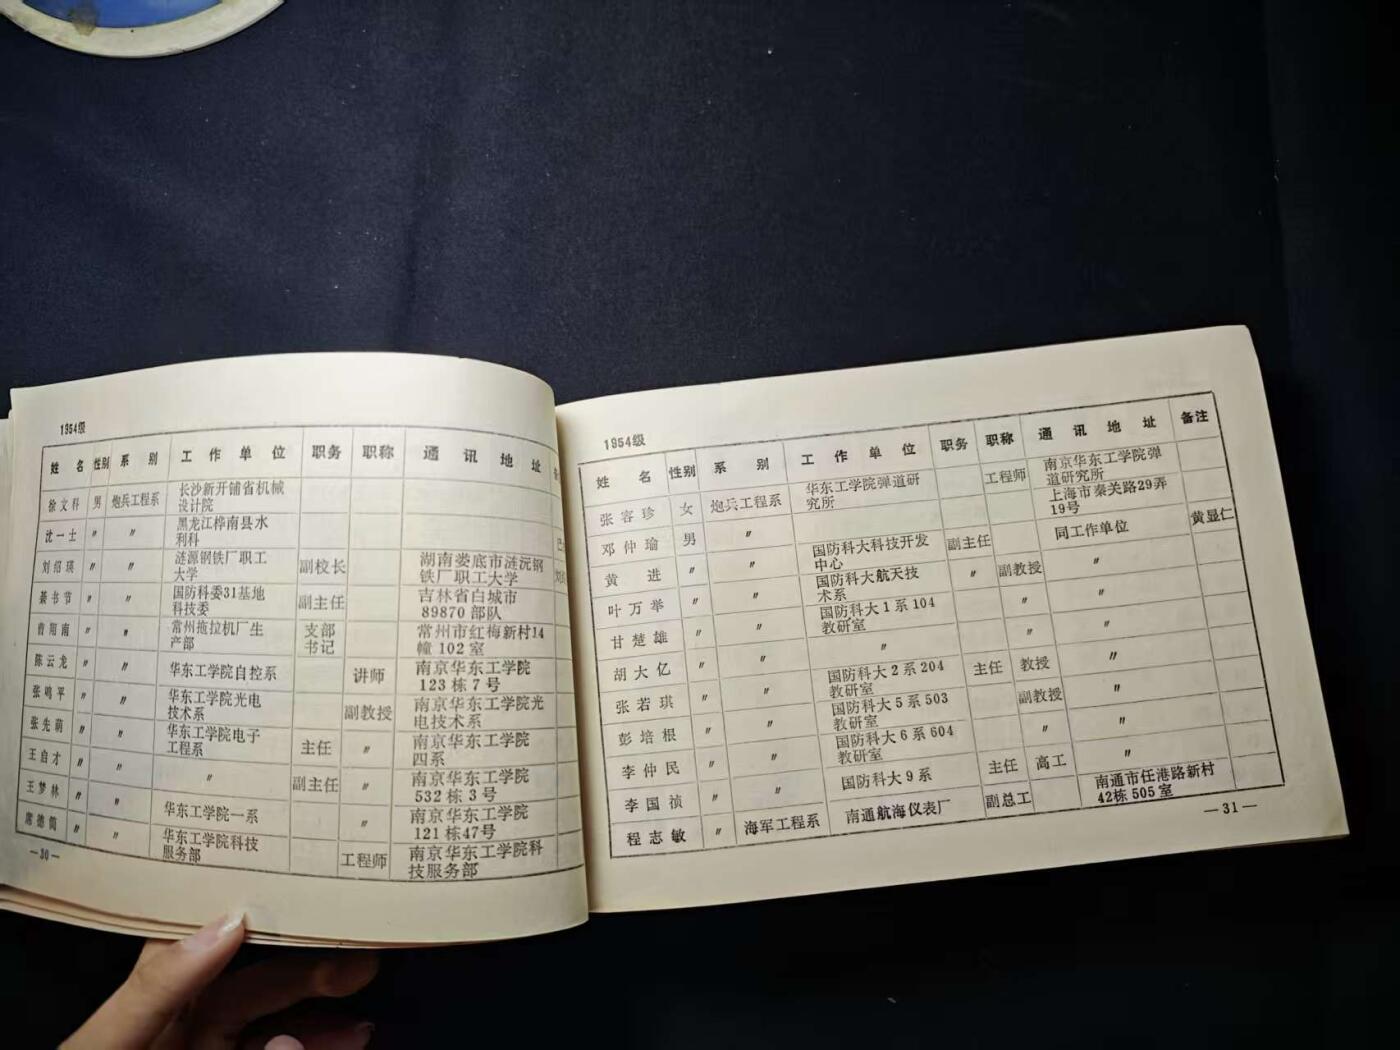 1954级
姓 名 性别 系 别 工 作 单 位 职务 职称 通 讯 地 址
徐文科 男 炮兵工程系 长沙新开铺省机械
设计院
沈一士 〃 〃 黑龙江桦南县水
利科
刘绍瑛 〃 〃 涟源钢铁厂职工
大学 副校长 湖南娄底市涟沅钢
铁厂职工大学
綦书节 〃 〃 国防科委31基地
科技委 副主任 吉林省白城市
89870部队
曾用南 〃 〃 常州拖拉机厂生
产部 支部
书记 常州市红梅新村14
幢102室
陈云龙 〃 〃 华东工学院自控系 讲师 南京华东工学院
123栋7号
张鸣平 〃 〃 华东工学院光电
技术系 副教授 南京华东工学院光
电技术系
张先萌 〃 〃 华东工学院电子
工程系 主任 〃 南京华东工学院
四系
王启才 〃 〃 〃 副主任 〃 南京华东工学院
532栋3号
王梦林 〃 〃 华东工学院一系 〃 南京华东工学院
121栋47号
席德简 〃 〃 华东工学院科技
服务部 工程师 南京华东工学院科
技服务部
—30—
1954级
姓 名 性别 系 别 工 作 单 位 职务 职称 通 讯 地 址 备注
张容珍 女 炮兵工程系 华东工学院弹道研
究所 工程师 南京华东工学院弹
道研究所
邓仲瑜 男 〃 上海市秦关路29弄
19号
黄 进 〃 〃 国防科大科技开发
中心 副主任 同工作单位 黄显仁
叶万举 〃 〃 国防科大航天技
术系 〃 副教授 〃
甘楚雄 〃 〃 国防科大1系104
教研室 〃 〃
胡大亿 〃 〃 〃 〃 〃
张若琪 〃 〃 国防科大2系204
教研室 主任 教授 〃
彭培根 〃 〃 国防科大5系503
教研室 副教授 〃
李仲民 〃 〃 国防科大6系604
教研室 〃 〃
李国祯 〃 〃 国防科大9系 主任 高工 〃
程志敏 〃 海军工程系 南通航海仪表厂 副总工 南通市任港路新村
42栋505室
—31—